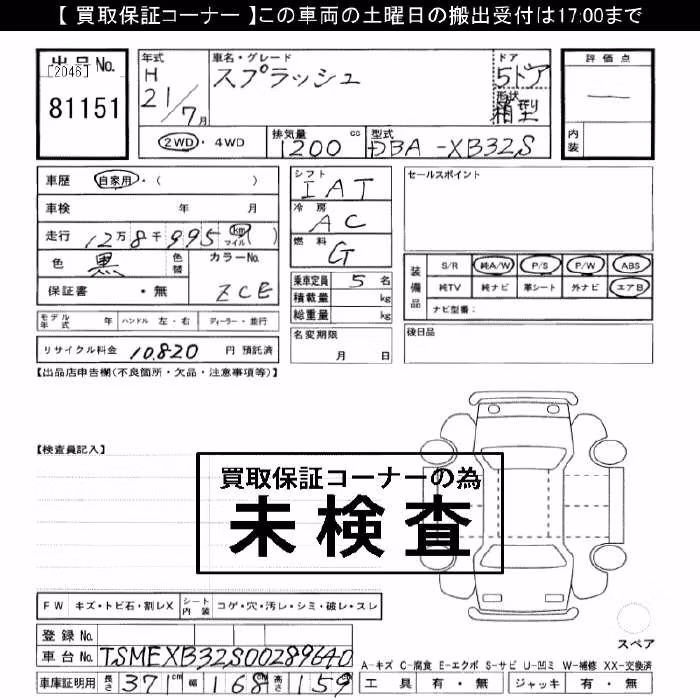 【 買取保証コーナー 】この車両の土曜日の搬出受付は17:00まで
出品No.
[2046]
81151
年式 H 21/7月
車名・グレード スプラッシュ
ドア 5ドア
形状 箱型
評価点 —
内装
2WD・4WD
排気量 1200 cc
型式 DBA-XB32S
車歴 自家用・( )
車検 年 月
走行 12万8千995 km マイル ( )
色 黒 色替 カラーNo. ZCE
保証書 ・無
シフト IAT
冷房 AC
燃料 G
乗車定員 5名
積載量 kg
総重量 kg
セールスポイント
装備品
S/R 純A/W P/S P/W ABS
純TV 純ナビ 革シート 外ナビ エアB
ナビ型番:
モデル年式 年 ハンドル 左・右 ディーラー・並行
名変期限 月 日
後日品
リサイクル料金 10,820 円 預託済
【出品店申告欄(不良箇所・欠品・注意事項等)】
【検査員記入】
買取保証コーナーの為
未検査
FW キズ・トビ石・割レX シート内装 コゲ・穴・汚レ・シミ・破レ・スレ
スペア
登録No.
車台No. TSMEXB32S00289640
A-キズ C-腐食 E-エクボ S-サビ U-凹ミ W-補修 XX-交換済
車庫証明用 長さ 371cm 幅 168cm 高さ 159cm
工具 有・無 ジャッキ 有・無